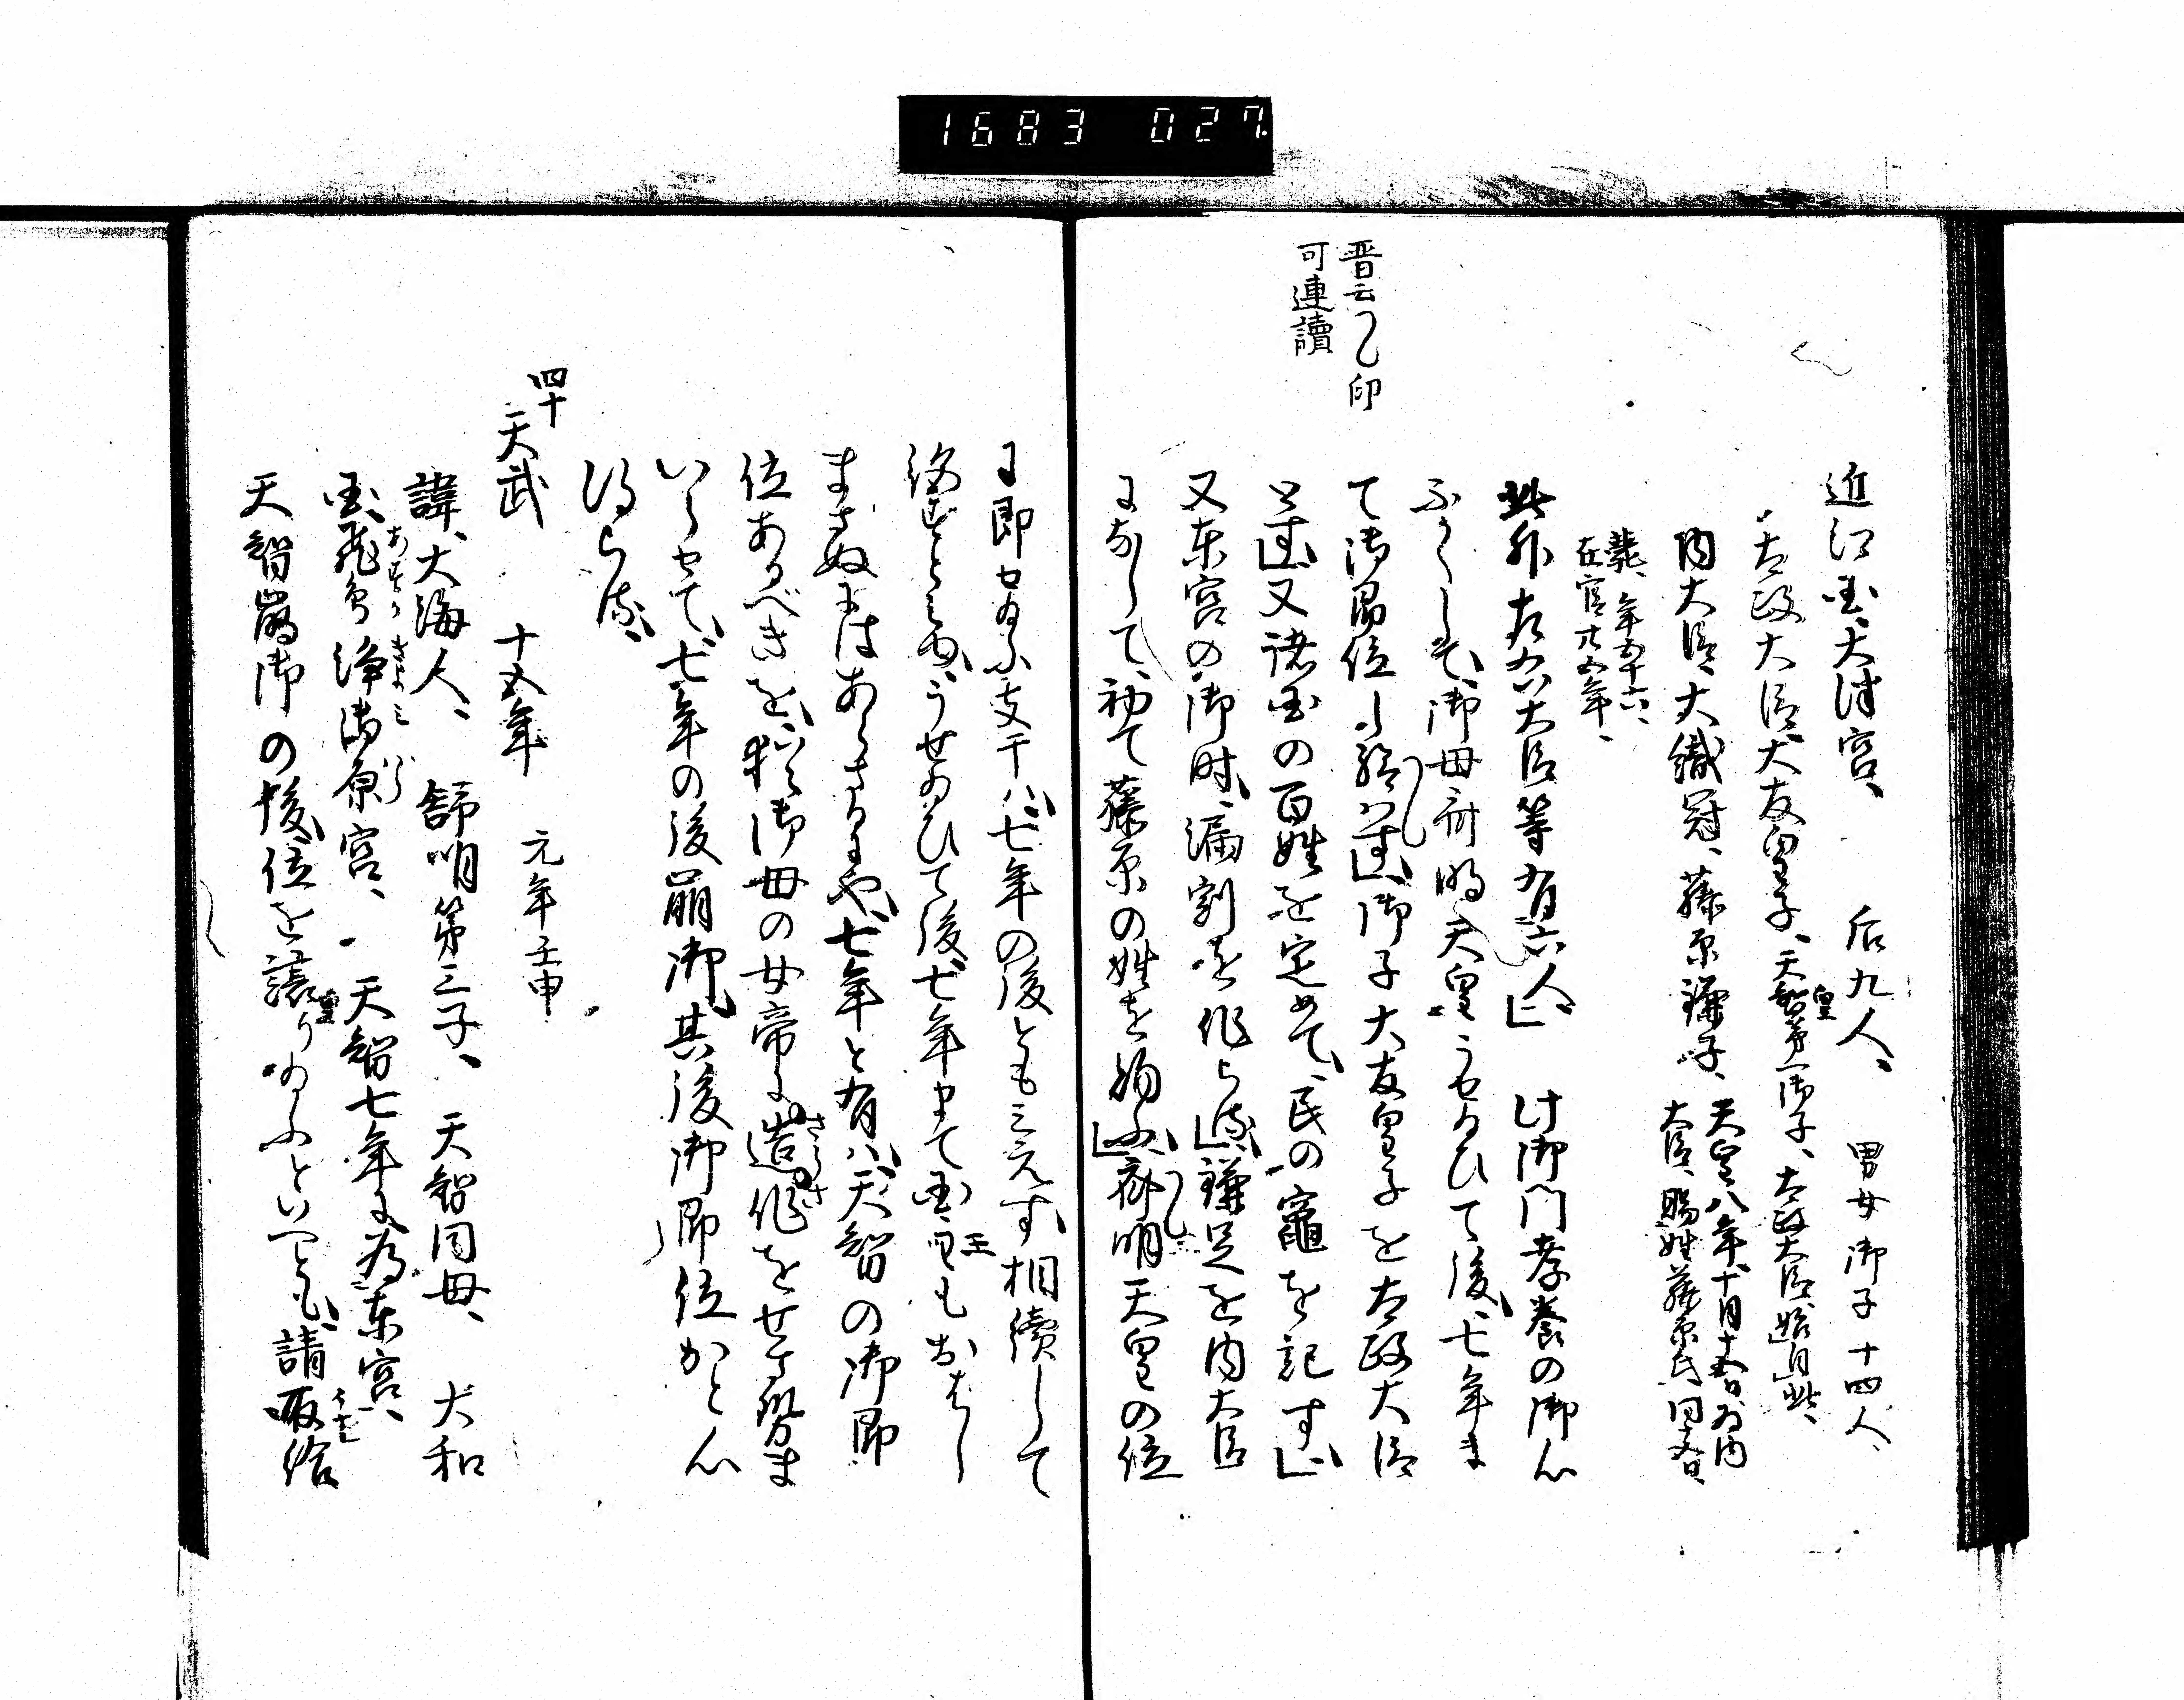 1683 027
近江国、大津宮、 后九人、 男女御子十四人、
太政大臣、大友皇子、天智皇第一御子、太政大臣始自此、
内大臣、大織冠、藤原鎌子、天皇八年十月十五日為内
大臣、賜姓藤原氏同日、
薨、年五十六、
在官廿五年、
此外左右大臣等有六人」 此御門孝養の御心
ふかくして、御母斉明天皇うせ給ひて後、七年ま
晋云〽印
可連讀
て御即位し給はす」御子大友皇子を太政大臣
とす」又諸国の百姓を定めて、民の竈を記す」
又東宮の御時、漏刻を作らす」鎌足を内大臣
になして、初て藤原の姓を給ふ」斉明天皇の位
に即せ給ふ支干ハ、七年の後とも三元す、相續して
うせ給ひて後、七年まて国王もおはし
まさぬにはあらさるにや、七年と有ハ、天智の御即
位あるへきを、猶御母の女帝に造作をせさせ
いらせて、七年の後崩御、其後御即位かと心
得らる、
四十
天武 十五年 元年壬申
諱、大海人、 舒明第三子、 天智同母、 大和
国、飛鳥浄御原宮、 天智七年に為東宮、
あすか きよみはら
天智崩御の後、位を譲り給ふといへとも、請取給